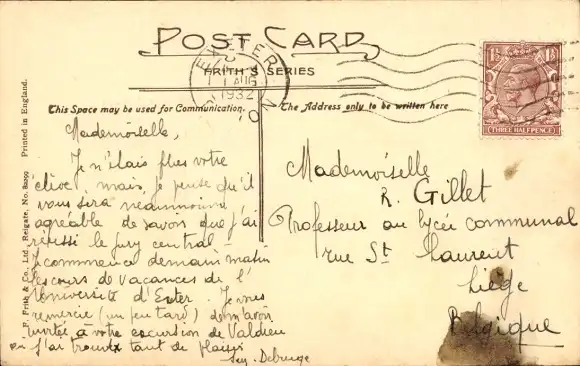 POST CARD
FRITH'S SERIES
EXETER
1 AUG
1932
DEVON
THREE HALFPENCE
This Space may be used for Communication.
The Address only to be written here
F. Frith & Co., Ltd., Reigate. No. 82099 Printed in England.
Mademoiselle,
Je n'étais plus votre
élève, mais je pense qu'il
vous sera néanmoins
agréable de savoir que j'ai
réussi le jury central -
Je commence demain matin
les cours de vacances de l'
Université d'Exeter. Je vous
remercie (un peu tard) de m'avoir
invitée à votre excursion de Valdieu
où j'ai trouvé tant de plaisir
Mademoiselle
R. Gillet
Professeur au lycée communal
rue St Laurent
Liège
Belgique